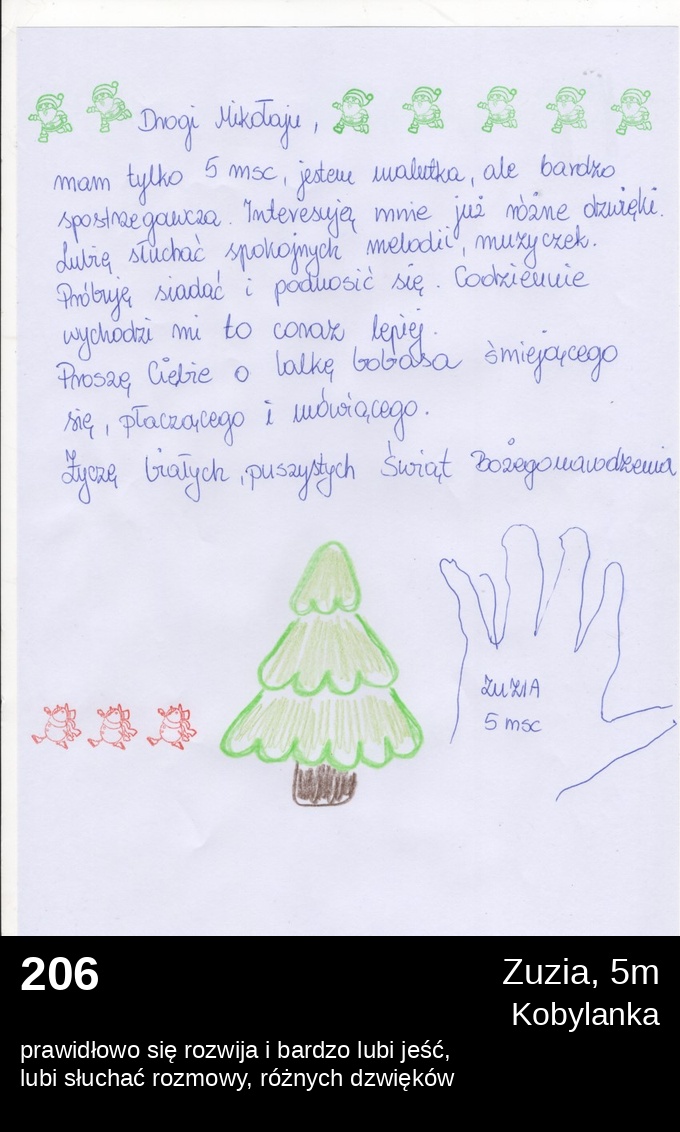 Drogi Mikołaju,
mam tylko 5 msc, jestem malutka, ale bardzo
spostrzegawcza. Interesują mnie już różne dzwięki.
Lubię słuchać spokojnych melodii, muzyczek.
Próbuję siadać i podnosić się. Codziennie
wychodzi mi to coraz lepiej.
Proszę Ciebie o lalkę bobasa śmiejącego
się, płaczącego i mówiącego.
Życzę białych, puszystych Świąt Bożegonarodzenia
ZUZIA
5 msc
206
Zuzia, 5m
Kobylanka
prawidłowo się rozwija i bardzo lubi jeść,
lubi słuchać rozmowy, różnych dzwięków